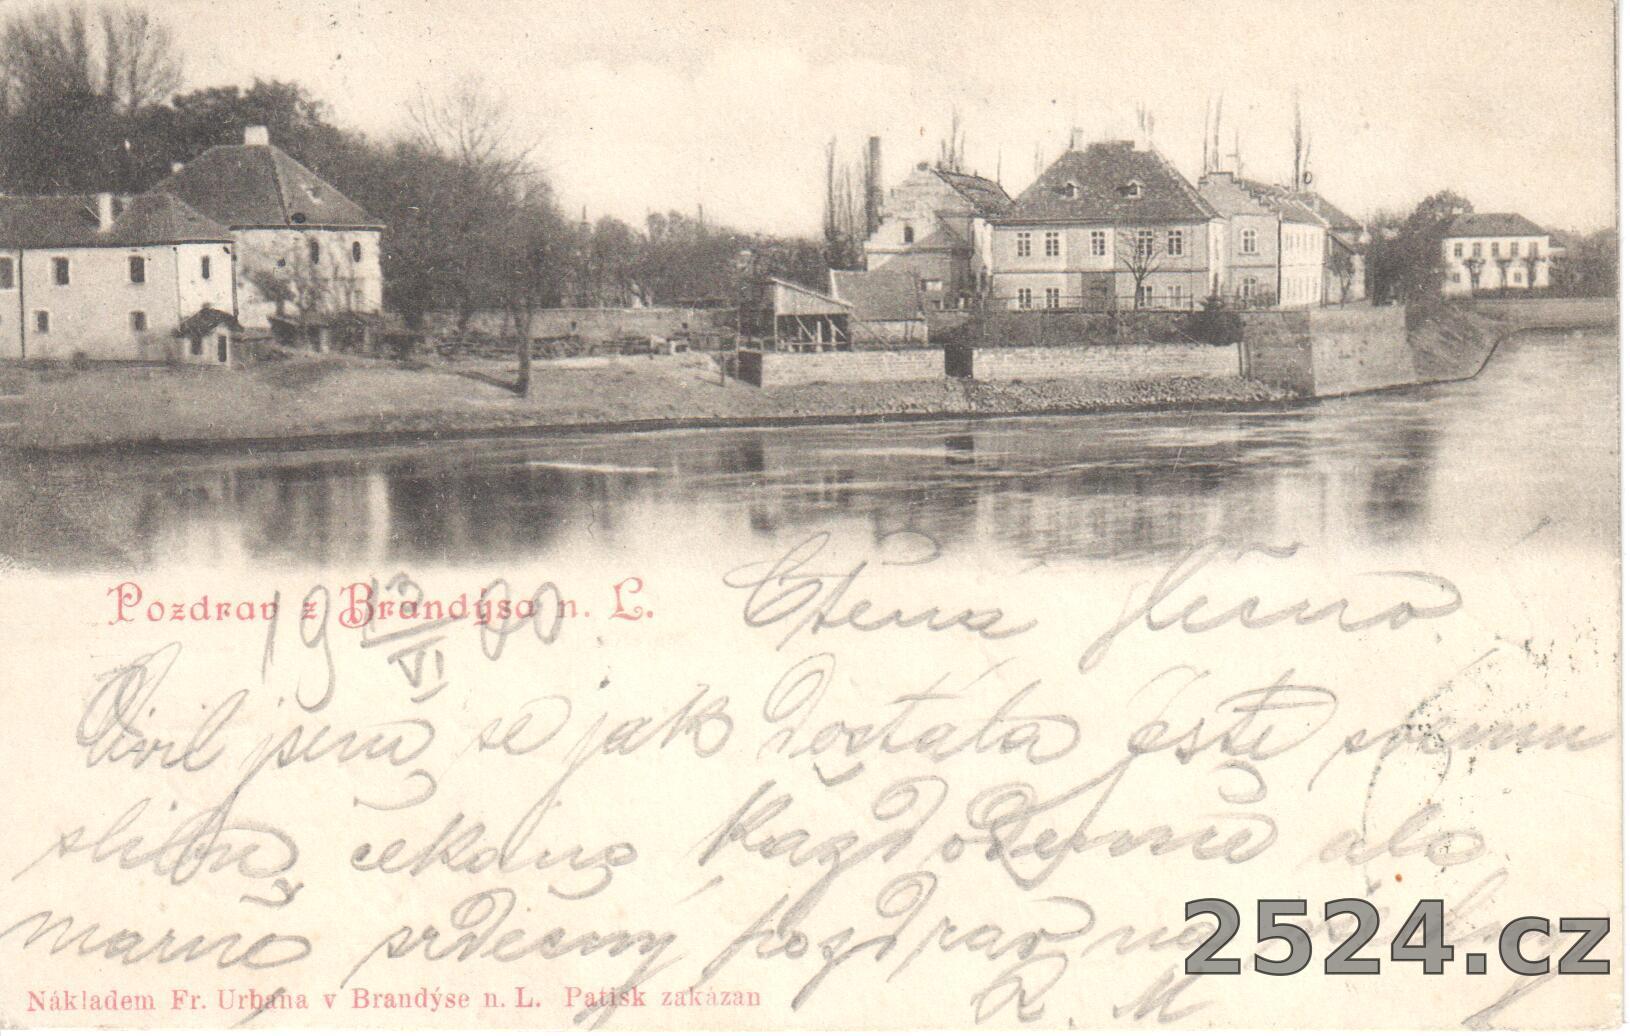 Pozdrav z Brandýsa n. L.
19 13/VI 00
Ctěná
Divil jsem se jak dostála jste svému
slibu čekáno každodenně ale
marně srdečný pozdrav na
R. M.
Nákladem Fr. Urbana v Brandýse n. L. Patisk zakázan
2524.cz